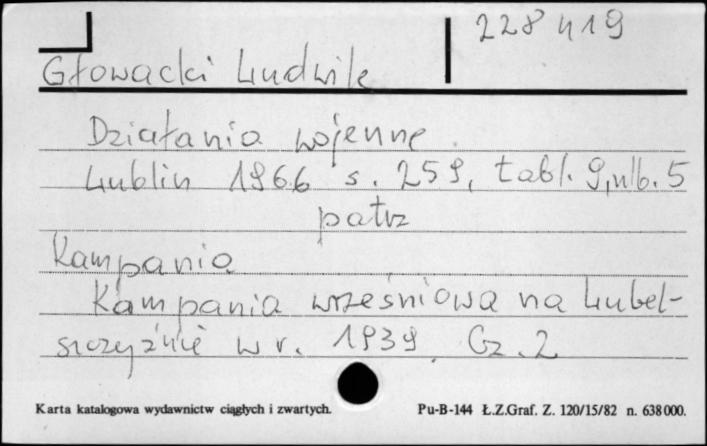 228419
Głowacki Ludwik
Działania wojenne.
Lublin 1966 s. 259, tabl. 9, nlb. 5
patrz
Kampania
Kampania wrześniowa na Lubel-
szczyźnie w r. 1939. Cz. 2
Karta katalogowa wydawnictw ciągłych i zwartych. Pu-B-144 Ł.Z.Graf. Z. 120/15/82 n. 638000.